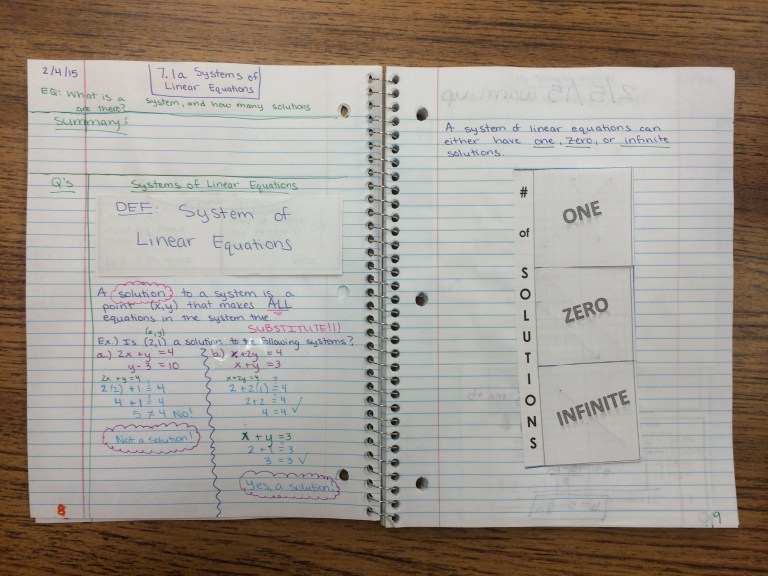 2/4/15
7.1a Systems of
Linear Equations
EQ: What is a system, and how many solutions
are there?
Summary:
Q's
Systems of Linear Equations
DEF: System of
Linear Equations
A solution to a system is a
point (x,y) that makes ALL
equations in the system true.
SUBSTITUTE!!!
(x,y)
Ex.) Is (2,1) a solution to the following systems?
a.) 2x + y = 4
y - 3 = 10
2x + y = 4
2(2) + 1 ≟ 4
4 + 1 ≟ 4
5 ≠ 4 No!
Not a solution!
b.) x + 2y = 4
x + y = 3
x + 2y = 4
2 + 2(1) ≟ 4
2 + 2 ≟ 4
4 = 4 ✓
x + y = 3
2 + 1 ≟ 3
3 = 3 ✓
Yes, a solution!
8
A system of linear equations can
either have one, zero, or infinite
solutions.
# of SOLUTIONS
ONE
ZERO
INFINITE
9